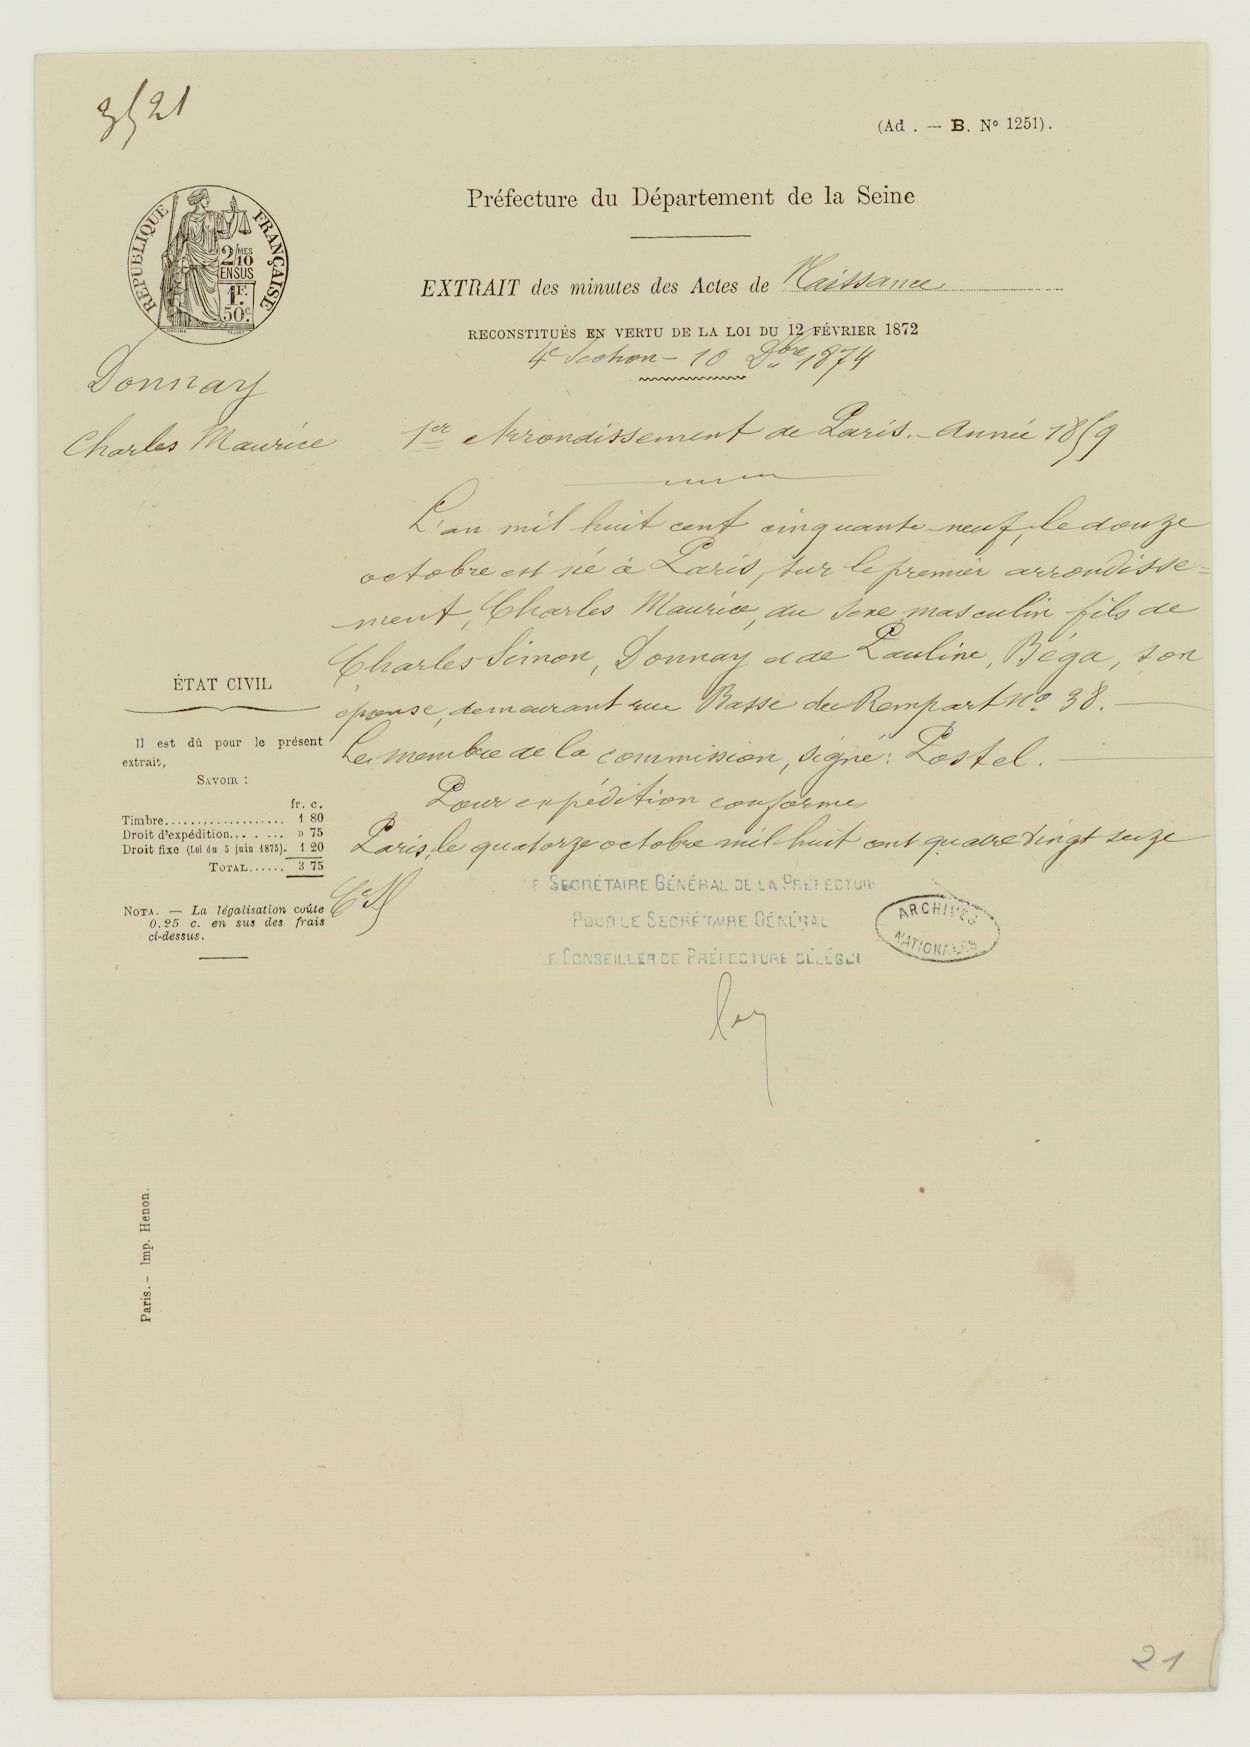 3521
(Ad. — B. N° 1251).
Préfecture du Département de la Seine
RÉPUBLIQUE FRANÇAISE
2/10 MES
EN SUS
1F.
50c.
EXTRAIT des minutes des Actes de Naissance
RECONSTITUÉS EN VERTU DE LA LOI DU 12 FÉVRIER 1872
4e Section - 10 Dbre 1874
Donnay
Charles Maurice
1er Arrondissement de Paris. - Année 1859
L'an mil huit cent cinquante-neuf, le douze
octobre est né à Paris, sur le premier arrondisse=
ment, Charles Maurice, du sexe masculin fils de
Charles Simon, Donnay et de Pauline, Béga, son
épouse, demeurant rue Basse du Rempart No 38.
Le membre de la commission, signé: Postel.
Pour expédition conforme
Paris, le quatorze octobre mil huit cent quatre vingt seize
ÉTAT CIVIL
Il est dû pour le présent
extrait,
SAVOIR :
fr. c.
Timbre.................. 1 80
Droit d'expédition........ » 75
Droit fixe (Loi du 5 juin 1875). 1 20
TOTAL...... 3 75
NOTA. — La légalisation coûte
0.25 c. en sus des frais
ci-dessus.
E SECRÉTAIRE GÉNÉRAL DE LA PRÉFECTURE
POUR LE SECRÉTAIRE GÉNÉRAL
LE CONSEILLER DE PRÉFECTURE DÉLÉGUÉ
ARCHIVES
NATIONALES
Paris. - Imp. Henon.
21